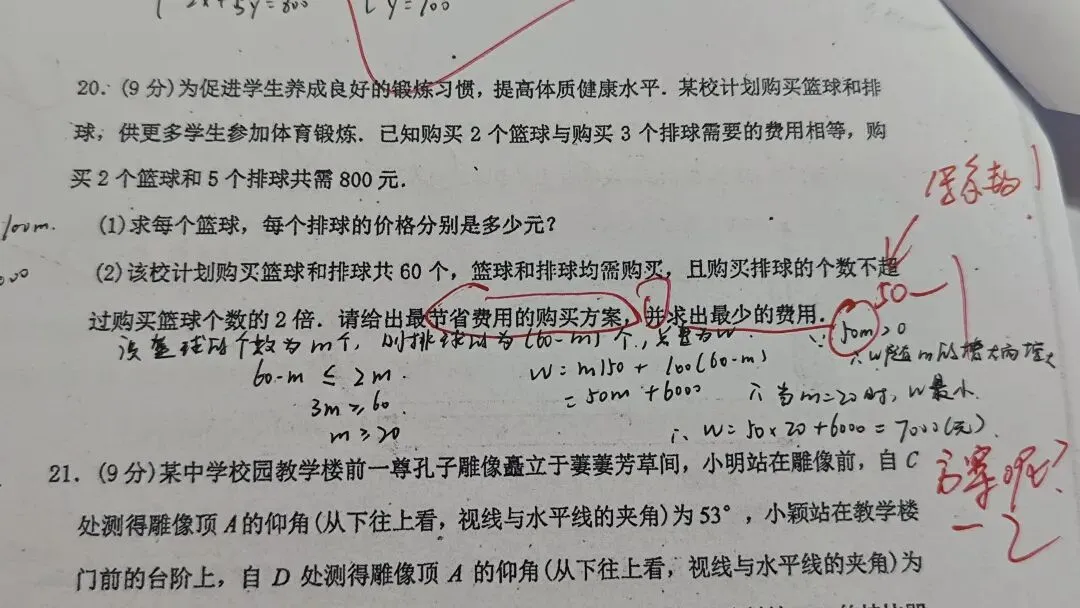 2x+5y=800
y=100
20．(9 分)为促进学生养成良好的锻炼习惯，提高体质健康水平．某校计划购买篮球和排
球，供更多学生参加体育锻炼．已知购买 2 个篮球与购买 3 个排球需要的费用相等，购
买 2 个篮球和 5 个排球共需 800 元．
(1)求每个篮球，每个排球的价格分别是多少元？
100m.
(2)该校计划购买篮球和排球共 60 个，篮球和排球均需购买，且购买排球的个数不超
过购买篮球个数的 2 倍．请给出最节省费用的购买方案，并求出最少的费用．
50
设篮球的个数为m个，则排球的为(60-m)个，总费为W.
60-m ≤ 2m.
3m≥60.
m≥20
W=m150+100(60-m)
=50m+6000
∵50m>0
∴W随m的增大而增大
∴当m=20时，W最小.
∴W=50×20+6000=7000(元).
方案呢？
-2
21．(9 分)某中学校园教学楼前一尊孔子雕像矗立于萋萋芳草间，小明站在雕像前，自 C
处测得雕像顶 A 的仰角(从下往上看，视线与水平线的夹角)为 53°，小颖站在教学楼
门前的台阶上，自 D 处测得雕像顶 A 的仰角(从下往上看，视线与水平线的夹角)为